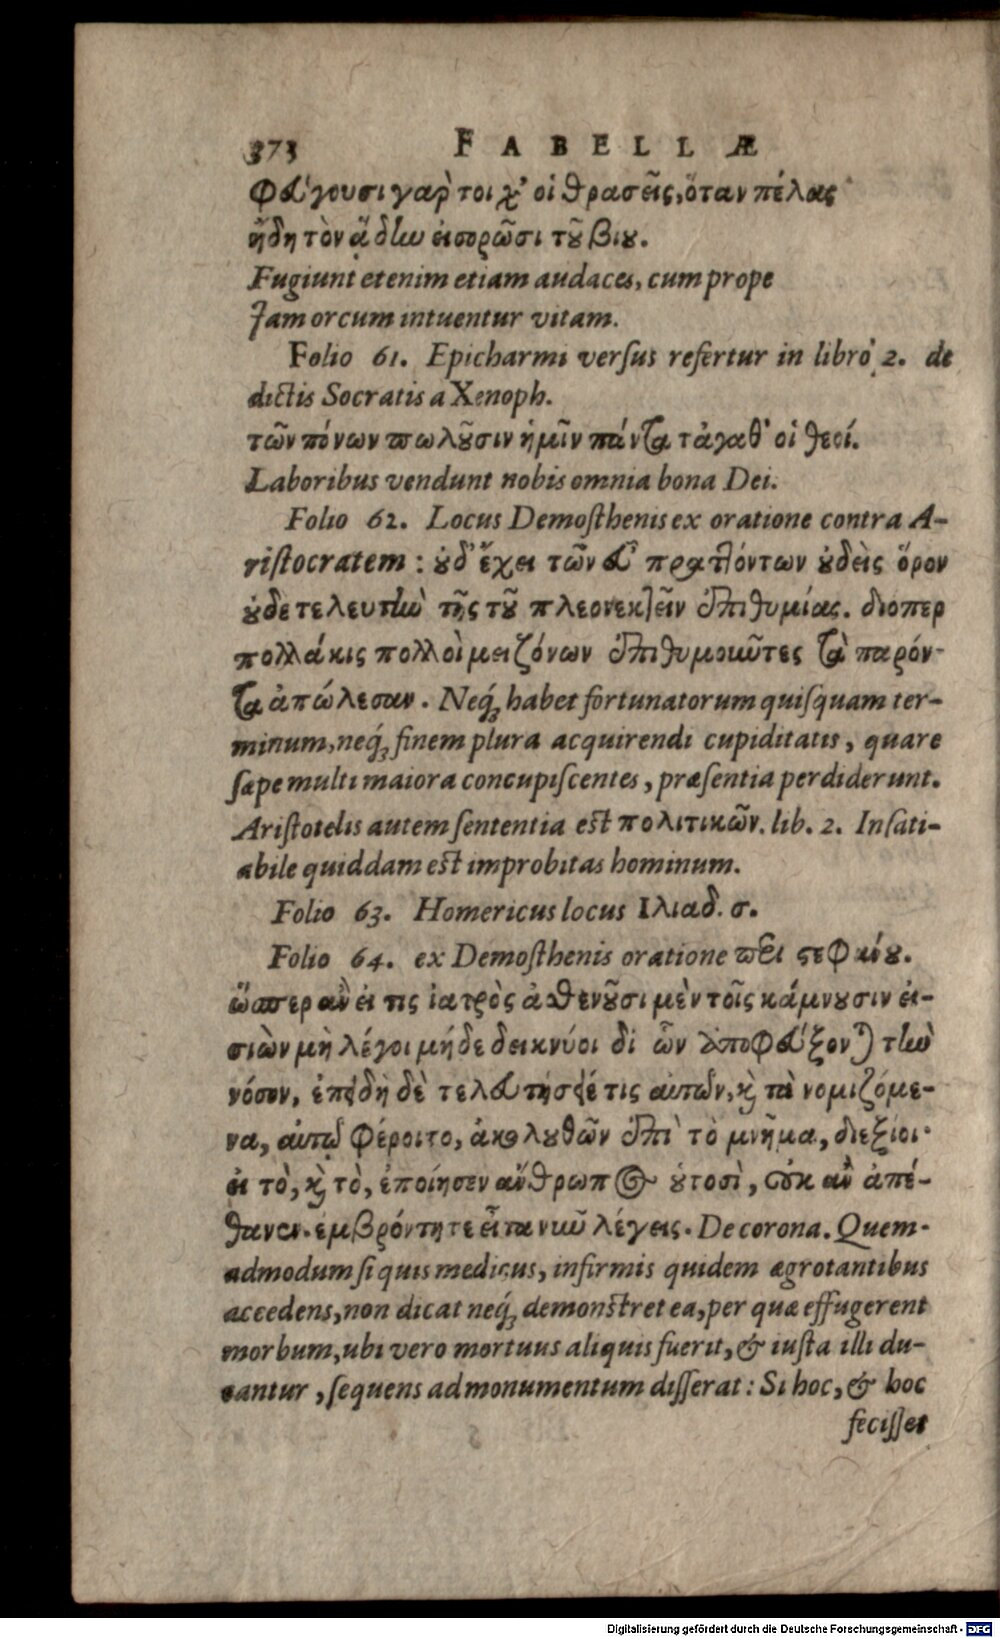 373 FABELLÆ
φεύγουσι γάρ τοι χ' οἱ θρασεῖς, ὅταν πέλας
ἤδη τὸν ᾅδην εἰσορῶσι τοῦ βίου.
Fugiunt etenim etiam audaces, cum prope
Jam orcum intuentur vitam.
Folio 61. Epicharmi versus refertur in libro 2. de
dictis Socratis a Xenoph.
τῶν πόνων πωλοῦσιν ἡμῖν πάντα τἀγαθ' οἱ θεοί.
Laboribus vendunt nobis omnia bona Dei.
Folio 62. Locus Demosthenis ex oratione contra A-
ristocratem: οὐδ' ἔχει τῶν εὖ πραττόντων οὐδεὶς ὅρον
οὐδε τελευτὴν τῆς τοῦ πλεονεκτεῖν ἐπιθυμίας. διοπερ
πολλάκις πολλοὶ μειζόνων ἐπιθυμοῦντες τὰ παρόν-
τα ἀπώλεσαν. Neq; habet fortunatorum quisquam ter-
minum, neq; finem plura acquirendi cupiditatis, quare
sæpe multi maiora concupiscentes, præsentia perdiderunt.
Aristotelis autem sententia est πολιτικῶν. lib. 2. Insati-
abile quiddam est improbitas hominum.
Folio 63. Homericus locus Ιλιαδ. σ.
Folio 64. ex Demosthenis oratione περὶ στεφάνου.
ὥσπερ ἂν εἴ τις ἰατρὸς ἀσθενοῦσι μὲν τοῖς κάμνουσιν εἰ-
σιὼν μὴ λέγοι μήδε δεικνύοι δι ὧν ἀποφεύξονται τὴν
νόσον, ἐπειδὴ δὲ τελευτήσειέ τις αὐτῶν, καὶ τὰ νομιζόμε-
να, αὐτῷ φέροιτο, ἀκολουθῶν ἐπὶ τὸ μνῆμα, διεξίοι·
εἰ τὸ, καὶ τὸ, ἐποίησεν ἄνθρωπος οὑτοσὶ, οὐκ ἂν ἀπέ-
θανεν. ἐμβρόντητε εἶτα νῦν λέγεις. De corona. Quem-
admodum si quis medicus, infirmis quidem ægrotantibus
accedens, non dicat neq; demonstret ea, per quæ effugerent
morbum, ubi vero mortuus aliquis fuerit, & iusta illi du-
cantur, sequens ad monumentum disserat: Si hoc, & hoc
fecisset
Digitalisierung gefördert durch die Deutsche Forschungsgemeinschaft - DFG